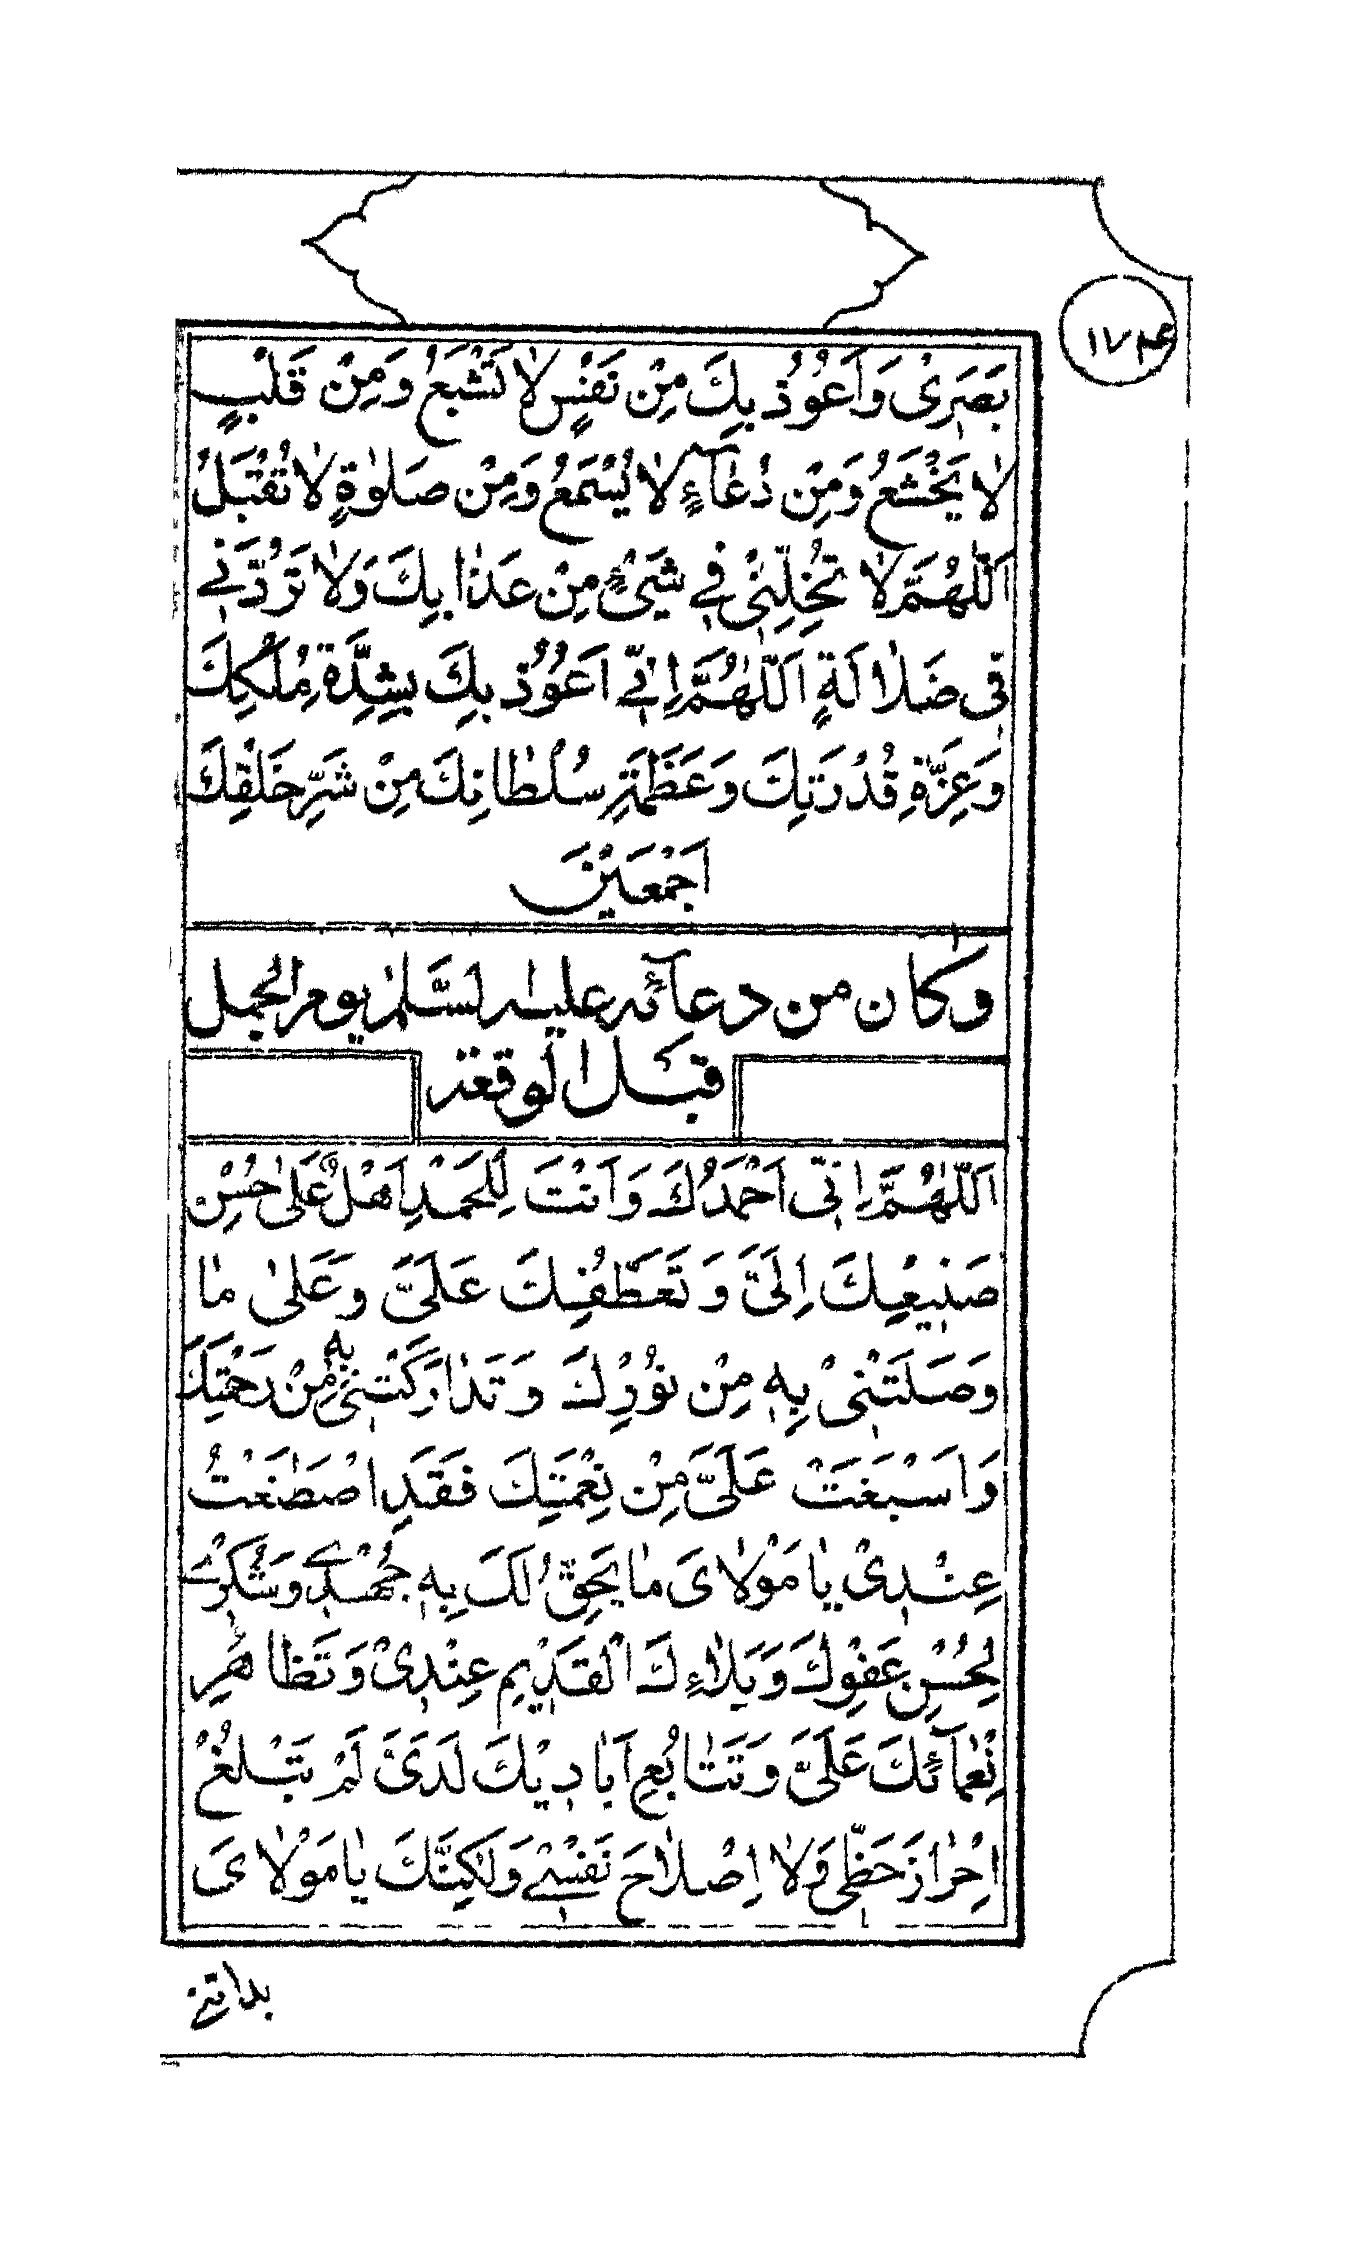 ۱۷۴
بَصَرِیْ وَاَعُوْذُ بِكَ مِنْ نَفْسٍ لَا تَشْبَعُ وَمِنْ قَلْبٍ
لَا يَخْشَعُ وَمِنْ دُعَآءٍ لَا يُسْمَعُ وَمِنْ صَلٰوةٍ لَا تُقْبَلُ
اَللّٰهُمَّ لَا تُخِلِّنِیْ فِیْ شَیْءٍ مِنْ عَذَابِكَ وَلَا تَرُدَّنِیْ
فِی ضَلَالَةٍ اَللّٰهُمَّ اِنِّیْ اَعُوْذُ بِكَ بِشِدَّةِ مُلْكِكَ
وَعِزَّةِ قُدْرَتِكَ وَعَظَمَةِ سُلْطَانِكَ مِنْ شَرِّ خَلْقِكَ
اَجْمَعِیْنَ
وكان من دعآئه عليه السّلام يوم الجمل
قبل الوقعة
اَللّٰهُمَّ اِنِّی اَحْمَدُكَ وَاَنْتَ لِلْحَمْدِ اَهْلٌ عَلٰی حُسْنِ
صَنِيْعِكَ اِلَیَّ وَتَعَطُّفِكَ عَلَیَّ وَعَلٰی مَا
وَصَلَتَنِیْ بِهٖ مِنْ نُوْرِكَ وَتَدَارَكْتَنِیْ بِهٖ مِنْ رَحْمَتِكَ
وَاَسْبَغْتَ عَلَیَّ مِنْ نِعْمَتِكَ فَقَدِ اصْطَنَعْتَ
عِنْدِیْ يَا مَوْلَایَ مَا يَحِقُّ لَكَ بِهٖ جُهْدِیْ وَشُكْرِیْ
لِحُسْنِ عَفْوِكَ وَبَلَاءِكَ الْقَدِيْمِ عِنْدِیْ وَتَظَاهُرِ
نَعْمَآئِكَ عَلَیَّ وَتَتَابُعِ اَيَادِيْكَ لَدَیَّ لَمْ تَبْلُغْ
اِحْرَازَ حَظِّیْ وَلَا اِصْلَاحَ نَفْسِیْ وَلٰكِنَّكَ يَا مَوْلَایَ
بداتنے